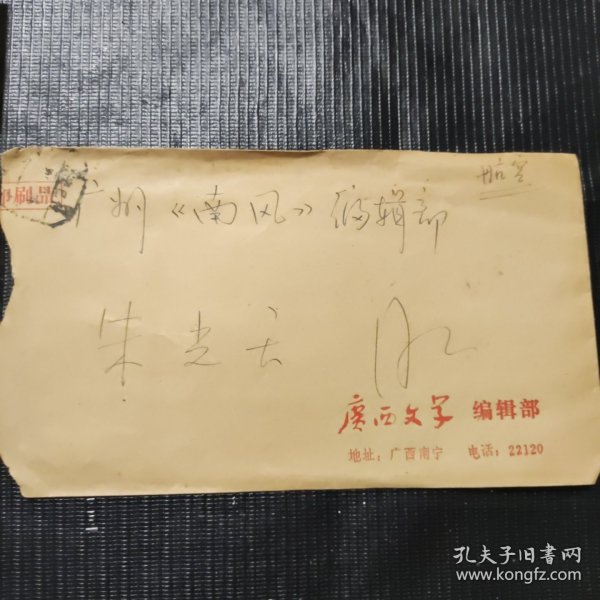 航空
印刷品
广州《南风》编辑部
朱光天 收
廣西文学 编辑部
地址：广西南宁 电话：22120
孔夫子旧书网
www.kongfz.com